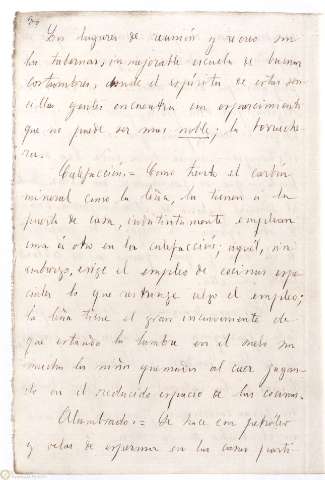 Los lugares de reunión y recreo son
las tabernas, inmejorable escuela de buenas
costumbres, donde el espíritu de estas sen-
cillas gentes encuentra un esparcimiento
que no puede ser mas noble; la borrache-
ra.
Calefacción.= Como tanto el carbón
mineral como la leña, la tienen a la
puerta de casa, indistintamente emplean
uno ú otro en la calefacción; aquél, sin
embargo, exige el empleo de cocinas espe-
ciales lo que restringe algo el empleo;
la leña tiene el gran inconveniente de
que estando la lumbre en el suelo son
muchos los niños quemados al caer jugan-
do en el reducido espacio de las cocinas.
Alumbrado.= Se hace con petróleo
y velas de esperma en las casas parti-